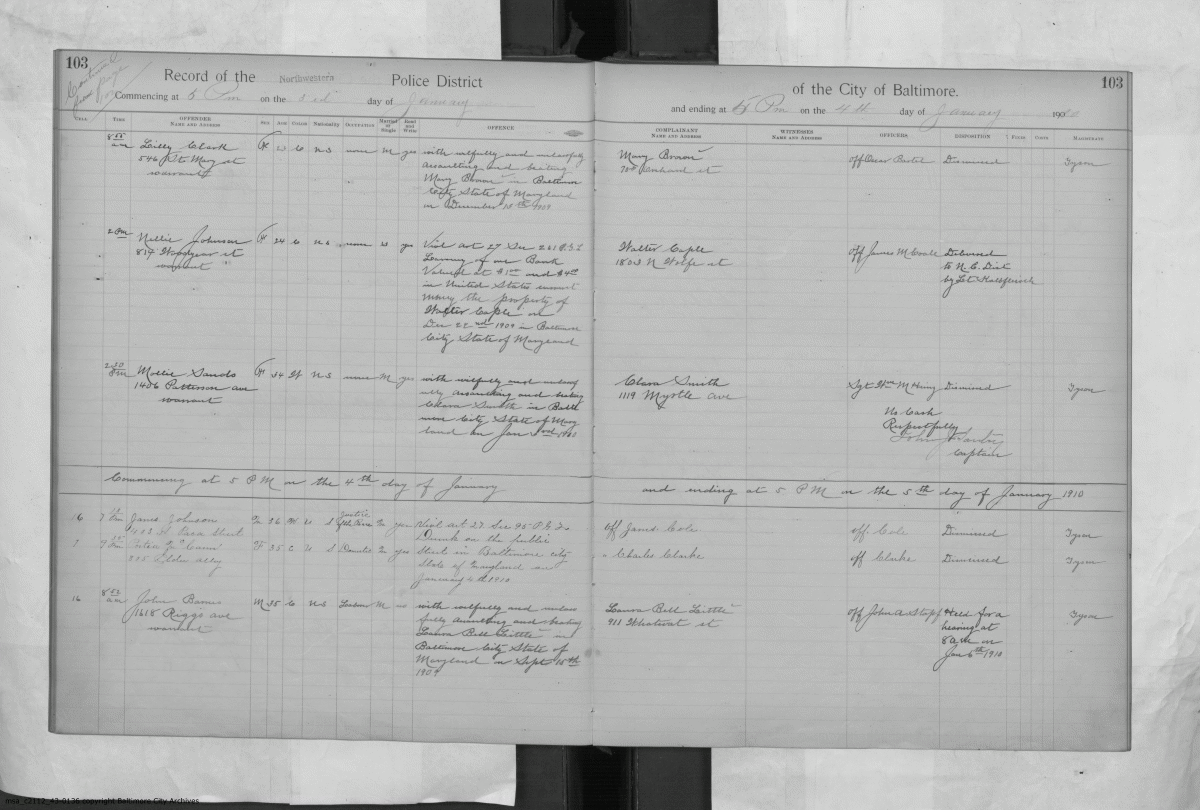 103
Continued
from Page
Record of the Northwestern Police District
Commencing at 5 Pm on the 3rd day of January
of the City of Baltimore.
103
and ending at 5 Pm on the 4th day of January 1910
TIME
OFFENDER
NAME AND ADDRESS
SEX AGE COLOR Nationality OCCUPATION Married or Single Read and Write
OFFENCE
COMPLAINANT
NAME AND ADDRESS
WITNESSES
NAME AND ADDRESS
OFFICERS DISPOSITION FINES Costs MAGISTRATE
8 55 am Lilly Clark F C U S none M yes with wilfully and unlawfully
546 St Mary st assaulting and beating
warrant Mary Brown in Baltimore
City State of Maryland
on December 1909
Mary Brown off Oscar Dismissed Tyson
st
2 Pm Nellie Johnson F 24 C U S none S yes Viol art 27 Sec
819 Woodyear st Larceny of one Bank
warrant Valued at $1 00 and $4 00
in United States current
money the property of
Walter Caple on
Dec 22nd 1909 in Baltimore
City State of Maryland
Walter Caple off James M Delivered
1803 N Wolfe st to N.E. Dist
by Lt.
2 30 Pm Mollie Sands F 34 W U S none M yes with wilfully and unlawf
1406 Patterson ave ully assaulting and beating
warrant Clara Smith in Balti
more City State of Mary
land on Jan 3rd 1910
Clara Smith Sgt Wm M Dismissed Tyson
1119 Myrtle ave
No Cash
Respectfully
John
Captain
Commencing at 5 P M on the 4th day of January
and ending at 5 P M on the 5th day of January 1910
16 7 Pm James Johnson M 36 W U S M yes Viol art 27 Sec 95 P.G.L.
Street Drunk on the public
7 7 Pm F 35 C U S Domestic M yes Street in Baltimore city
alley State of Maryland on
January 4th 1910
off James Cole off Cole Dismissed Tyson
" Charles Clarke off Clarke Dismissed Tyson
16 8 am John Barnes M 35 C U S M with wilfully and unlaw
1618 Riggs ave fully assaulting and beating
warrant Laura Bell Little in
Baltimore City State of
Maryland on Sept 15th
1909
Laura Bell Little off John A Held for a Tyson
911 st hearing at
8 am on
Jan 6th 1910
msa_c2112_43-0136 copyright Baltimore City Archives